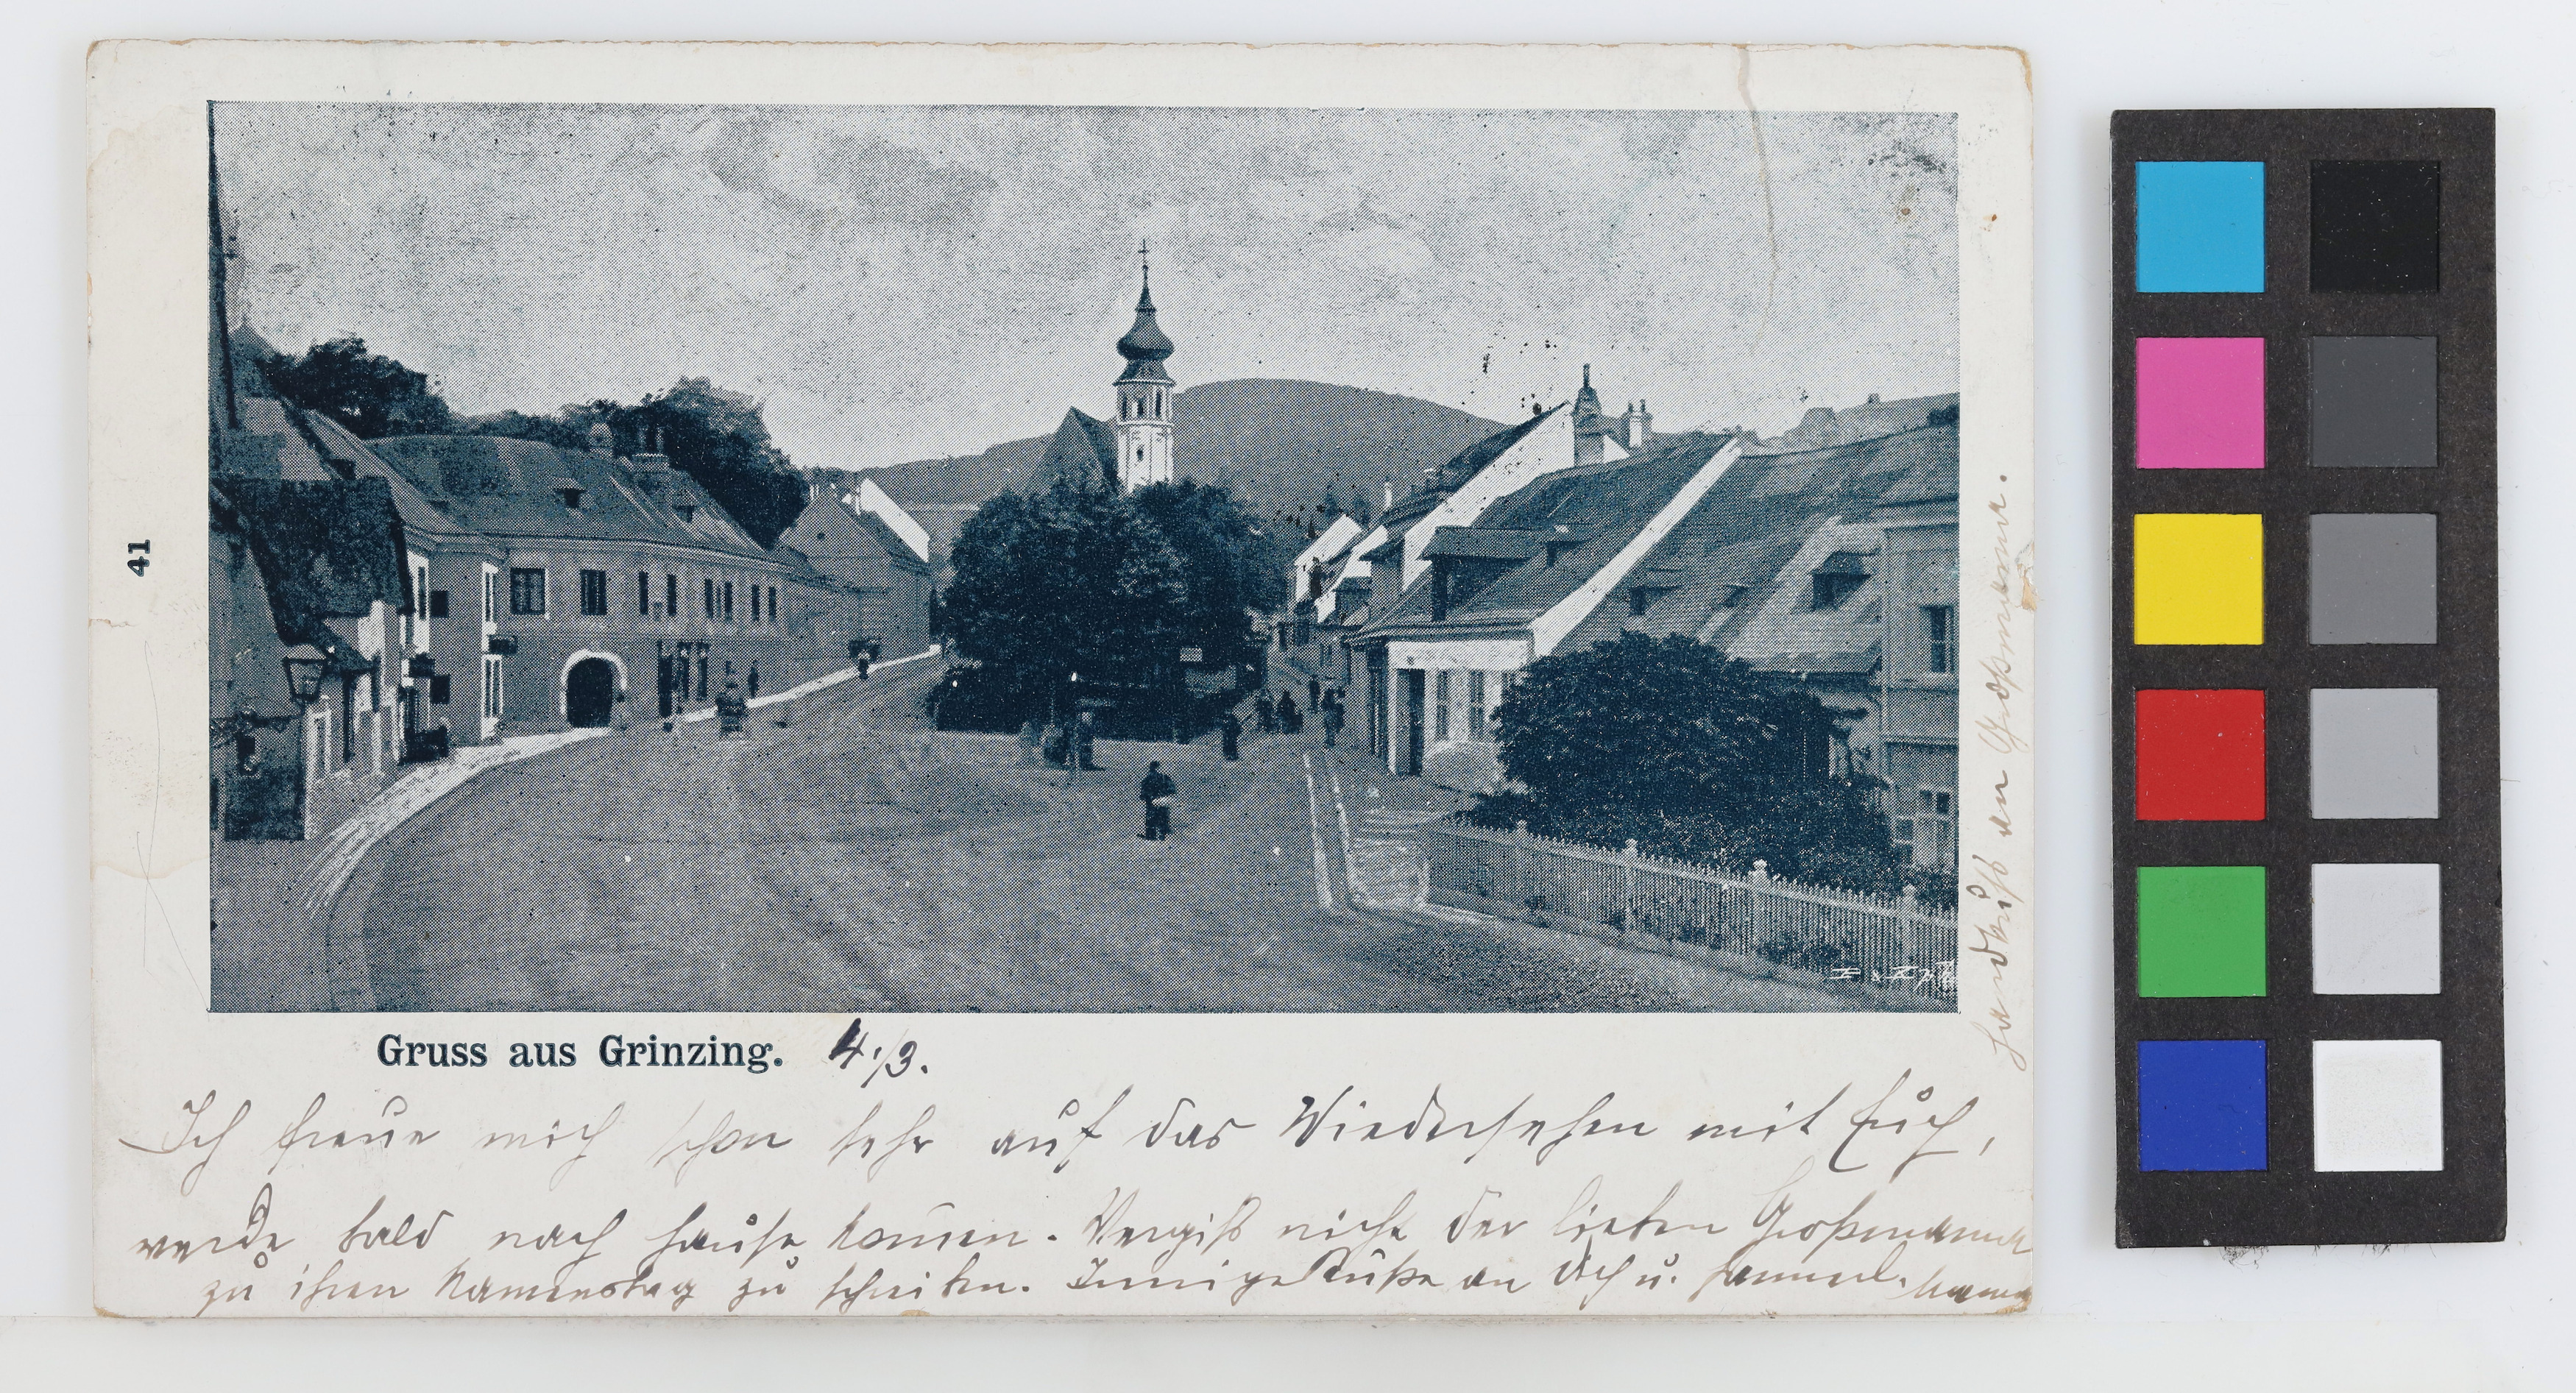 41
Gruss aus Grinzing. 4./3.
Ich freue mich schon sehr auf das Wiedersehen mit Euch,
werde bald nach Hause kom̅en. Vergiß nicht der lieben Großmama
zu ihren Namenstag zu schreiben. Innige Küße an Dich u. Mama
Handkuß an Großmama.